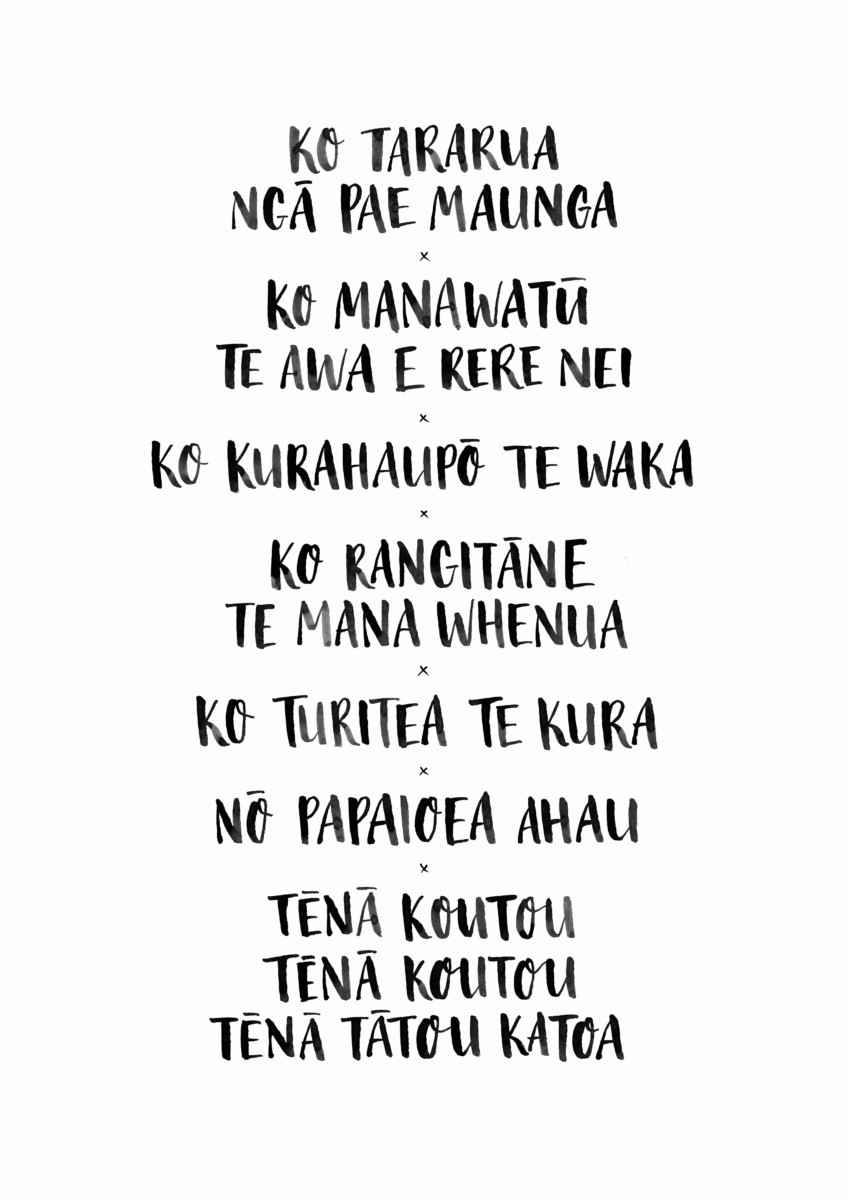 KO TARARUA
NGĀ PAE MAUNGA
x
KO MANAWATŪ
TE AWA E RERE NEI
x
KO KURAHAUPŌ TE WAKA
x
KO RANGITĀNE
TE MANA WHENUA
x
KO TURITEA TE KURA
x
NŌ PAPAIOEA AHAU
x
TĒNĀ KOUTOU
TĒNĀ KOUTOU
TĒNĀ TĀTOU KATOA